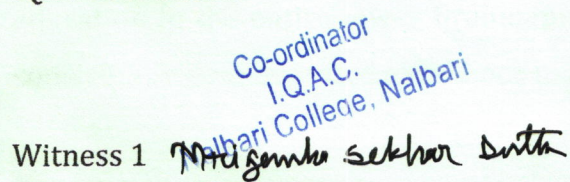 Co-ordinator
I.Q.A.C.
Nalbari College, Nalbari
Witness 1 Mriganka Sekhar Dutta